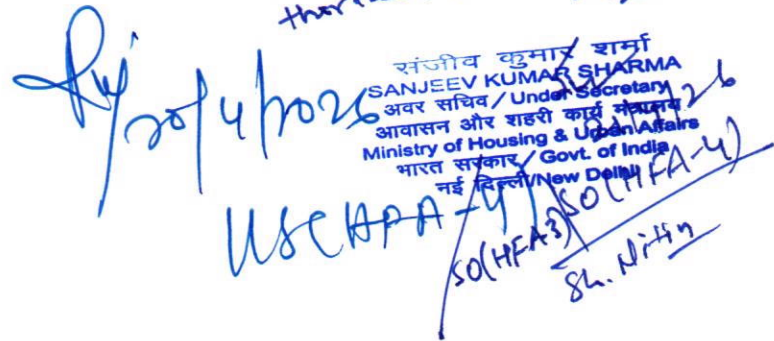 20/4/2026
संजीव कुमार शर्मा
SANJEEV KUMAR SHARMA
अवर सचिव / Under Secretary
आवासन और शहरी कार्य मंत्रालय
Ministry of Housing & Urban Affairs
भारत सरकार / Govt. of India
नई दिल्ली/New Delhi
SO(HFA-4)
SO(HFA3)
Sh. Nitin